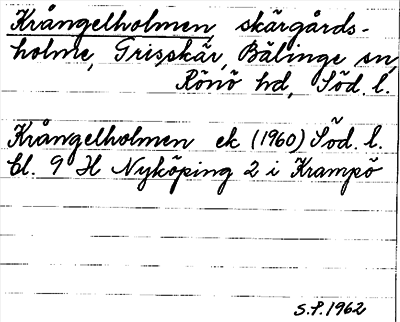 Krångelholmen, skärgårds-
holme, Grisskär, Bälinge sn,
Rönö hd, Söd. l.
Krångelholmen ek (1960) Söd. l.
bl. 9 H Nyköping 2 i Krampö
S.P. 1962